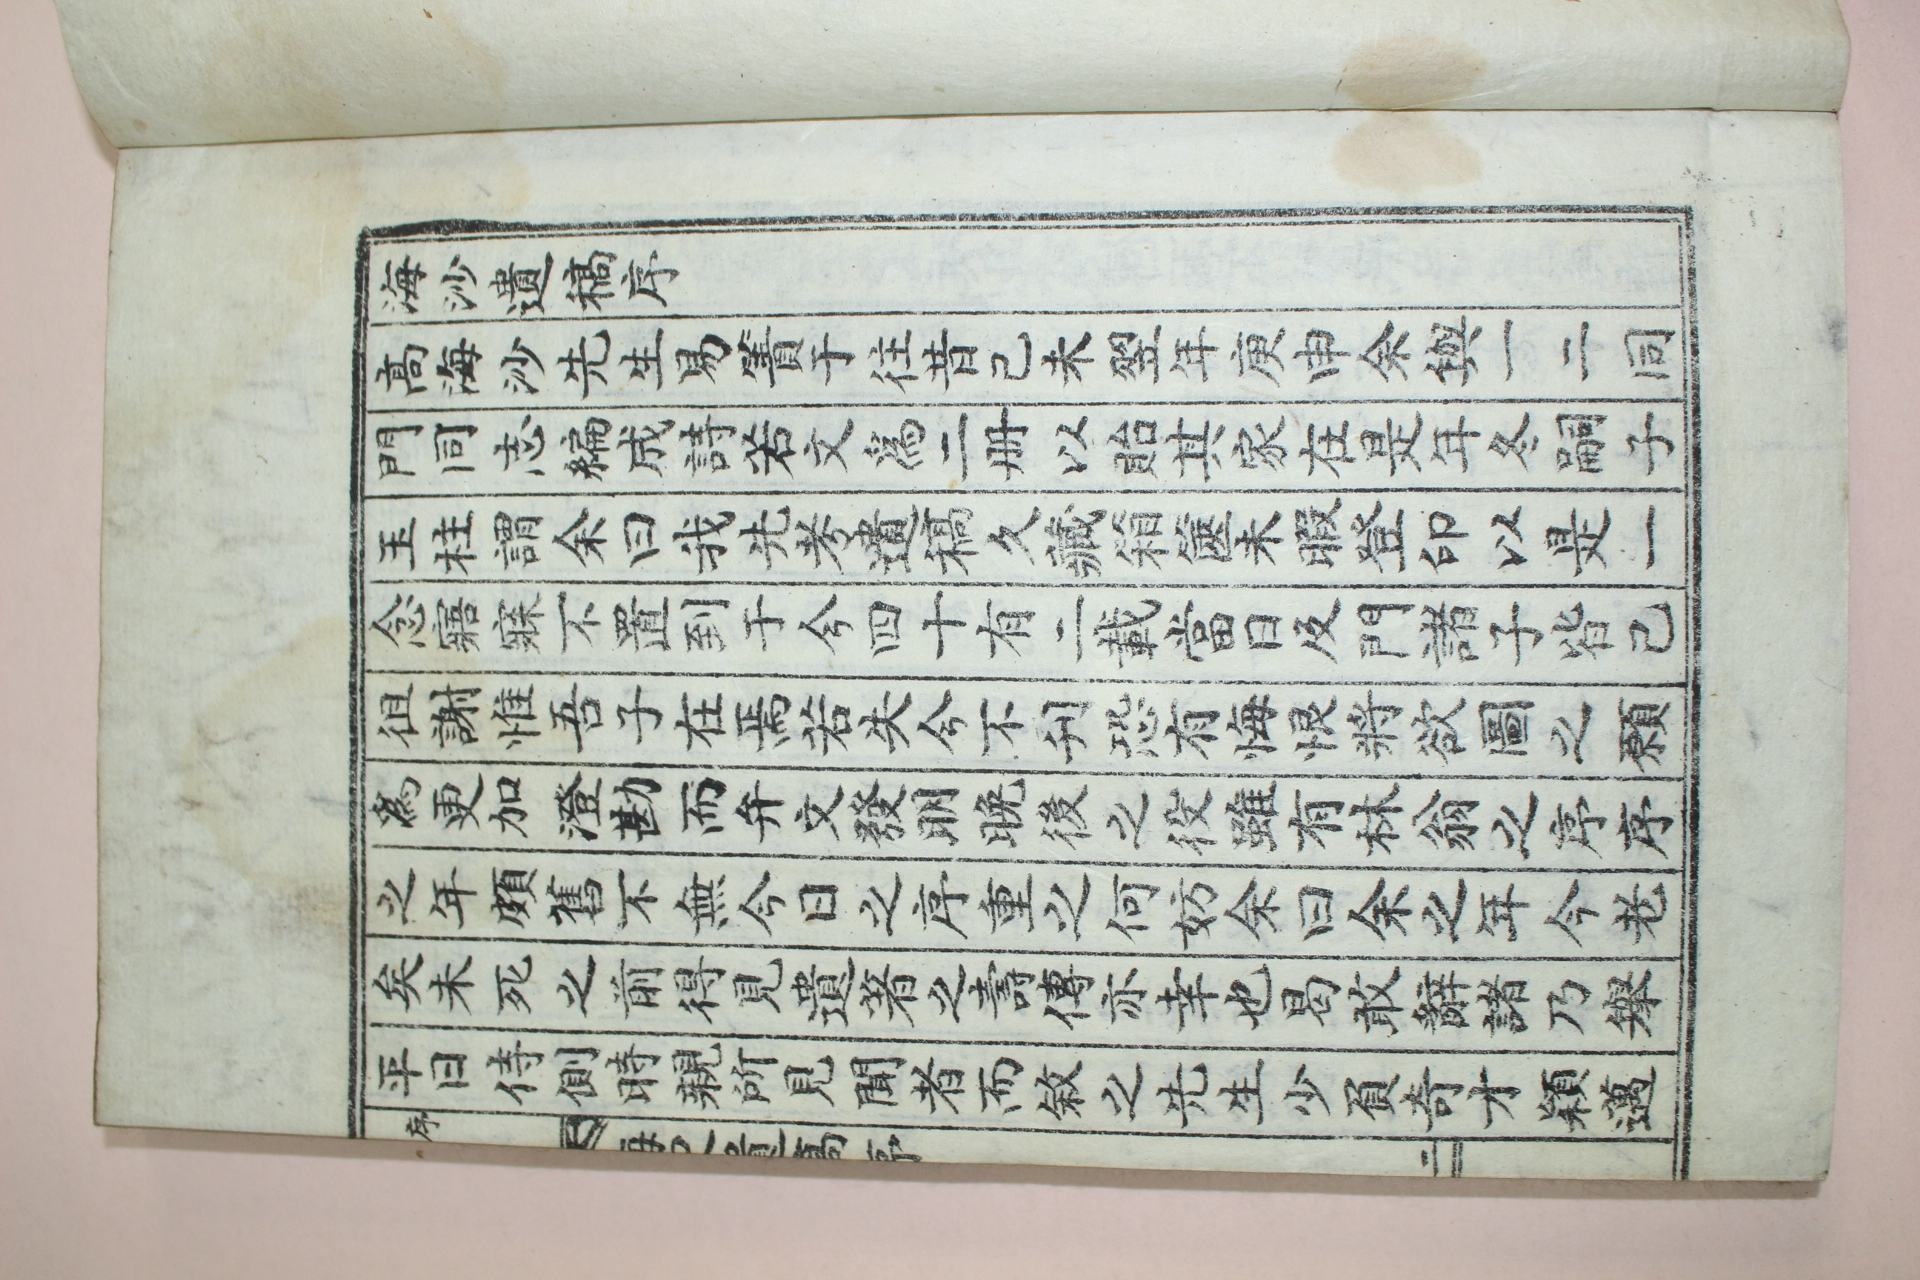 海沙遺稿序
高海沙先生易簀于往昔己未翌年庚申余與一二同
門同志編成詩若文爲二册以貽其家在是年冬嗣子
玉柱謂余曰我先考遺稿久藏箱篋未暇登印以是一
念寤寐不置到于今四十有二載當日及門諸子皆已
徂謝惟吾子在焉若失今不刊恐有悔恨將欲圖之願
爲更加澄勘而弁文發明晚後之役雖有林翁之序序
之年頗舊不無今日之序重之何妨余曰余之年今老
矣未死之前得見遺著之壽傳亦幸也曷敢辭諸乃擧
平日侍側時親所見聞者而敘之先生少負奇才穎邁
序
海沙遺稿序
二